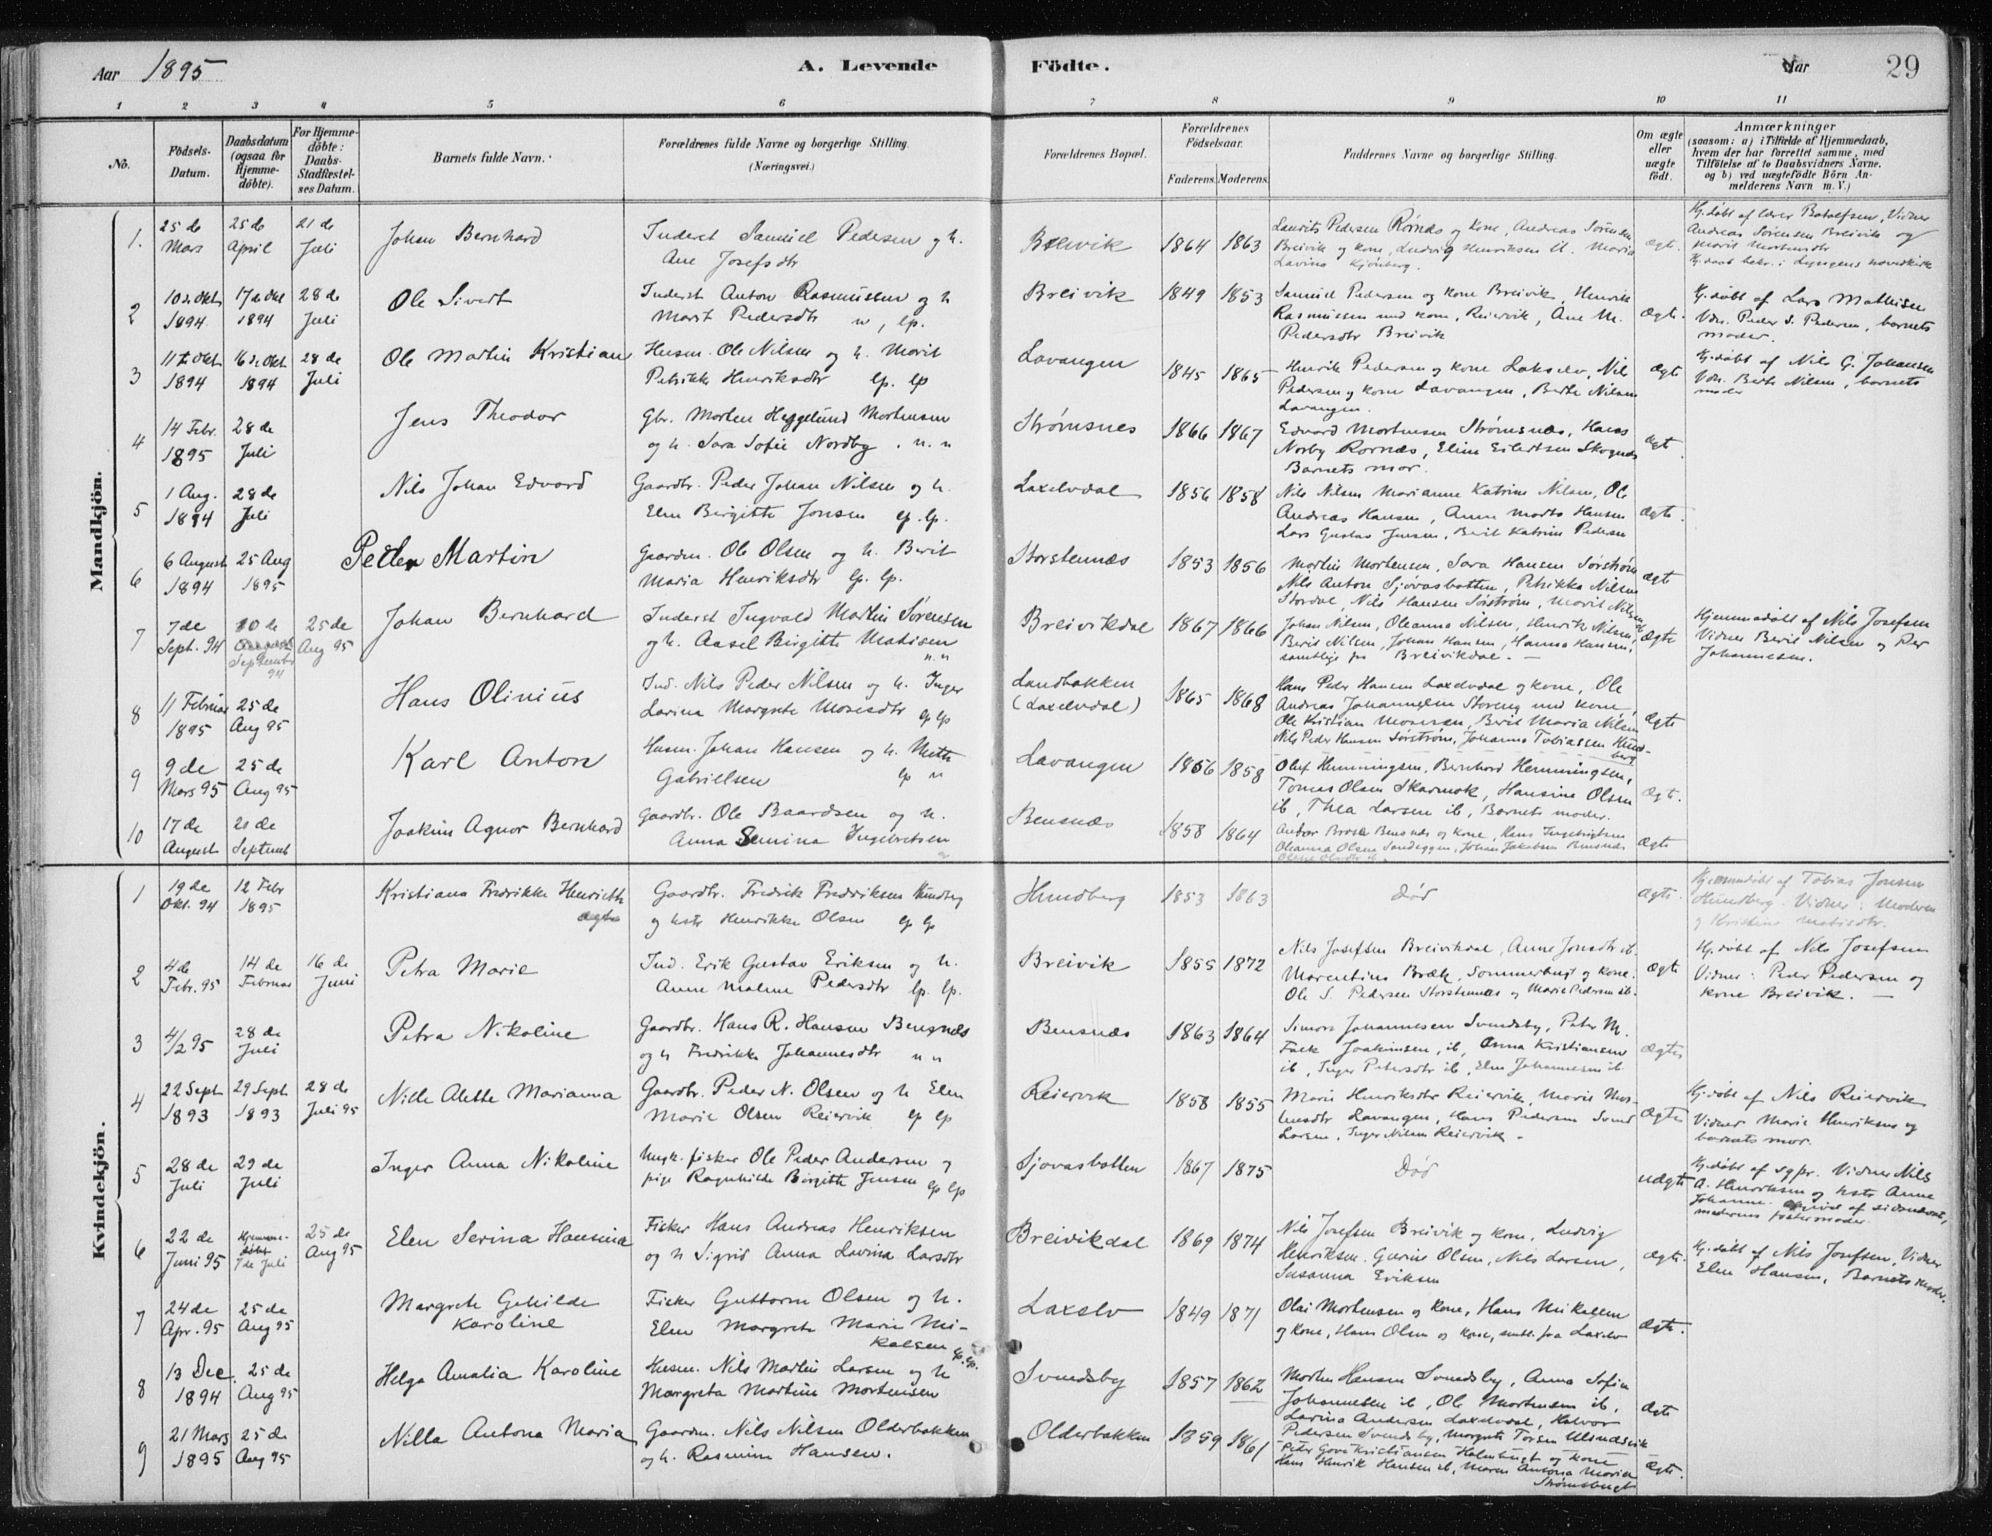 Aar 1895
A. Levende Födte.
Aar
29
1 2 3 4 5 6 7 8 9 10 11
No.
Födsels-Datum.
Daabsdatum (ogsaa for Hjemme-döbte).
For Hjemme-döbte: Daabs-Stadfæstel-ses Datum.
Barnets fulde Navn.
Forældrenes fulde Navne og borgerlige Stilling. (Næringsvei.)
Forældrenes Bopæl.
Forældrenes Födselsaar.
Faderens. Moderens.
Faddernes Navne og borgerlige Stilling.
Om ægte eller uægte födt.
Anmærkninger
(saasom: a) i Tilfælde af Hjemmedaab,
hvem der har forrettet samme, med
Tilföielse af to Daabsvidners Navne,
og b) ved uægtefödte Börn An-
melderens Navn m. V.)
Mandkjön.
1. 25 de Mars 25 de April 21 de Juli Johan Bernhard Inderst Samuel Pedersen og h. Ane Josefsdtr Breivik 1864 1863 Laurits Pedersen Rørnæs og kone, Andreas Sørensen Breivik og kone, Ludvig Henriksen Maria Lavina ægt. Hj. døbt af lærer Vidner Andreas Sørensen Breivik og Marit Mortensdtr
2 10 de Okt 1894. 17 de Okt 1894 28 de Juli Ole Sivert Inderst Anton Rasmussen og h Marit Pedersdtr n, lp. Breivik 1849 1853 Samuel Pedersen og kone Breivik, Henrik Rasmussen med kone, Reiervik, Ane M. Pedersdtr Breivik Ægte. Hj. døbt af Lars Mathisen Vdn. Peder S. Pedersen, barnets moder.
3 11te Okt 1894 16 de Okt 1894 28 de Juli Ole Martin Kristian Husm. Ole Nilsen og h. Marit Petrikke Henriksdtr lp. lp Lavangen 1845 1865 Henrik Pedersen og kone Lakselv, Nils Pedersen og kone Lavangen, Berthe Nilsen Lavangen. Ægte Hj. døbt af Nils G. Johansen Vdn. Berthe Nilsen, barnets moder
4 14 Febr. 1895 28 de Juli Jens Theodor Gbr. Morten Heggelund Mortensen og h. Sara Sofie Nordby n. n Strømsnes 1866 1867 Edvard Mortensen Strømsnæs, Hans Norby Rornæs, Eline Eilertsen Skognæs Barnets mor. Ægt.
5 1 Aug. 1894 28 de Juli Nils Johan Edvard Gaardbr. Peder Johan Nilsen og h. Elen Birgitte Jonsen lp. lp. Laxelvdal 1856 1858 Nils Nilsen Marianne Katrine Nilsen, Ole Andreas Hansen, Anne Marthe Hansen Lars Gustav Jensen, Berit Katrine Pedersen Ægte.
6 6 August 1894 25 Aug 1895 Peder Martin Gaardm. Ole Olsen og h. Berit Maria Henriksdtr lp. lp. Storstennæs 1853 1856 Martin Mortensen, Sara Hansen Sørstrøm Nils Anton Sjøvasbotten, Petrikke Nilsen Stordal, Nils Hansen Sørstrøm, Marit Nilsen ib Ægte
7 7 de Sept. 94 10 de September 94 25 de Aug 95 Johan Bernhard Inderst Ingvald Martin Sørensen og h. Aasel Birgitte Matisen n. n Breivikdal 1867 1866 Johan Nilsen, Oleanna Nilsen, Henrik Nilsen, Berit Nilsen, Johan Hansen, Hanna Hansen, samtlige fra Breivikdal. Ægte Hjemmedøbt af Nils Josefsen Vidner Berit Nilsen og Per Johannesen.
8 11 Februar 1895 25 de Aug 95 Hans Olinius Ind. Nils Peder Nilsen og h. Inger Larina Margrete Mosesdtr lp lp Landbakken (Laxelvdal) 1865 1868 Hans Peder Hansen Laxelvdal og kone, Ole Andreas Johannesen Storeng med kone, Ole Kristian Mosesen, Berit Maria Nilsen Nils Peder Hansen Sørstrøm, Johanna Tobiassen Hundberg Ægte
9 9 de Mars 95 25 de Aug 95 Karl Anton Husm. Johan Hansen og h. Mette Gabrielsen lp n Lavangen 1856 1858 Olaf Hemmingsen, Bernhard Hemmingsen, Tomas Olsen Skarmok, Hansine Olsen ib, Thea Larsen ib, Barnets moder. Ægt.
10 17 de August 21 de Septemb Joakim Agnor Bernhard Gaardbr. Ole Baardsen og h. Anna Semina Ingebretsen Bensnæs 1858 1864 Bensnæs og kone, Hans Ingebrigtsen Oleanna Olsen Sandeggen, Johan Jakobsen Bensnæs Ægte
Kvindekjön.
1 19 de Okt. 94 12 Febr 1895 Kristiana Fredrikke Henriette ægte Gaardbr. Fredrik Fredriksen Hundberg og hstr Henrikke Olsen lp lp Hundberg 1853 1863 Død Ægte. Hjemmedøbt af Tobias Jensen Hundberg. Vidner: Moderen og Kristine Matisdtr.
2 4 de Febr. 95 14 de Februar 16 de Juni Petra Marie Ind. Erik Gustav Eriksen og h. Anne Malene Pedersdtr lp. lp. Breivik 1855 1872 Nils Josefsen Breivikdal, Anne Jonsdtr ib. Marentius Bræk, Sommerbugt og kone. Ole S. Pedersen Storstennæs og Marie Pedersen ib. Ægte Hj. døbt af Nils Josefsen Vidner: Peder Pedersen og kone Breivik.
3 4/2 95 28 de Juli Petra Nikoline Gaardbr. Hans R. Hansen Bensnæs og h Fredrikke Johannesdtr n n Bensnæs 1863 1864 Simon Johannesen Svendsby, Peter M. Falk Joakimsen, ib, Anna Kristiansen ib, Inger Petersdtr ib, Elen Johannesen ib Ægte
4 22 Sept 1893 29 Sept 1893 28 de Juli 95 Nille Alette Marianna Gaardbr. Peder N. Olsen og h Elen Marie Olsen Reiervik lp lp Reiervik 1858 1855 Marie Henriksdtr Reiervik, Marie Mortensdtr Lavangen, Hans Pedersen Svend Larsen, Inger Nilsen Reiervik. Ægte Hj. døbt af Nils Reiervik Vidner Marie Henriksen og barnets mor.
5 28 de Juli 29 de Juli Inger Anna Nikoline Ungk. fisker Ole Peder Andersen og pige Ragnhilde Birgitte Jensen lp lp Sjøvasbotten 1867 1875 Død uægte Hj. døbt af sgpr. Vidner Nils A. Henriksen og hstr Anne Johanne. moderens fostermoder.
6 22 de Juni 95 Hjemmedøbt 7 de Juli 25 de Aug 95 Elen Serina Hansina Fisker Hans Andreas Henriksen og h Sigrid Anna Lavina Larsdtr Breivikdal 1869 1874 Nils Josefsen Breivik og kone, Ludvig Henriksen. Gurine Olsen, Nils Larsen, Susanna Eriksen Ægte. Hj. døbt af Nils Josefsen, Vidner Elen Hansen, Barnets moder.
7 24 de Apr. 95 25 de Aug 95 Margrete Gehilde Karoline Fisker Guttorm Olsen og h. Elen Margrete Marie Mikalsen lp. lp. Laxelv 1849 1871 Olai Mortensen og kone, Hans Mikalsen og kone, Hans Olsen og kone, samtl. fra Laxelv Ægte.
8 13 Dec. 1894 25 de Aug 95 Helga Amalia Karoline Husm. Nils Martin Larsen og h Margreta Martine Mortensen Svendsby 1857 1862 Morten Hansen Svendsby, Anna Sofia Johannesen ib, Ole Mortensen ib, Lavina Andersen Laxelvdal, Halvor Pedersen Svendsby, Margrete Torsen Ulendsvik Ægte
9 21 Mars 1895 25 de Aug 95 Nilla Antona Maria Gaardm. Nils Nilsen Olderbakken og h. Rasmine Hansen. Olderbakken 1859 1861 Peter Gove Kristiansen Holmbugt og kone Hans Henrik Hansen ib, Maren Antona Marie Strømsbugt Ægte.